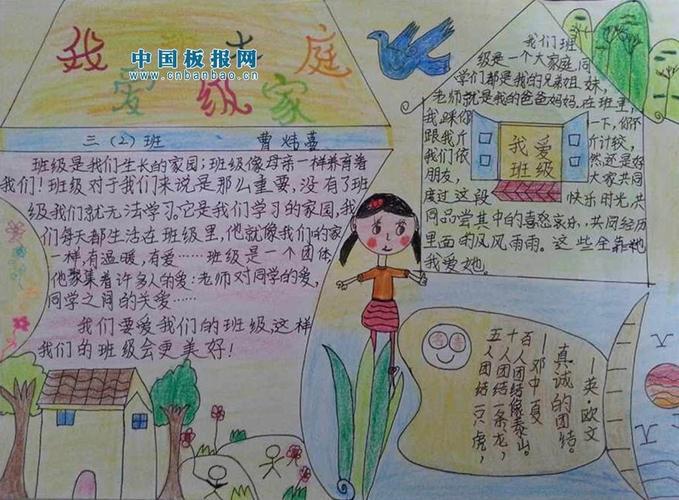 我 庭
爱 级 家
中国板报网
www.cnbanbao.cn
三(2)班 曹炜喜
班级是我们生长的家园;班级像母亲一样养育着
我们!班级对于我们来说是那么重要,没有了班
级我们就无法学习。它是我们学习的家园,我
们每天都生活在班级里,他就像我们的家
一样,有温暖,有爱……班级是一个团体
他聚集着许多人的爱:老师对同学的爱,
同学之间的关爱……
我们要爱我们的班级,这样
我们的班级会更美好!
我们班
级是一个大家庭,同
学们都是我的兄弟姐妹,
老师就是我的爸爸妈妈,在班里,
我踩你 一下,你不
跟我斤 斤计较,
我们依 然还是好
朋友, 大家共同
度过这段 快乐时光,共
同品尝其中的喜怒哀乐,共同经历
里面的风风雨雨。这些全靠她
我爱她。
我爱
班级
五人团结一只虎,
十人团结一条龙,
百人团结像泰山。
——邓中夏
真诚的团结。
——英·欧文